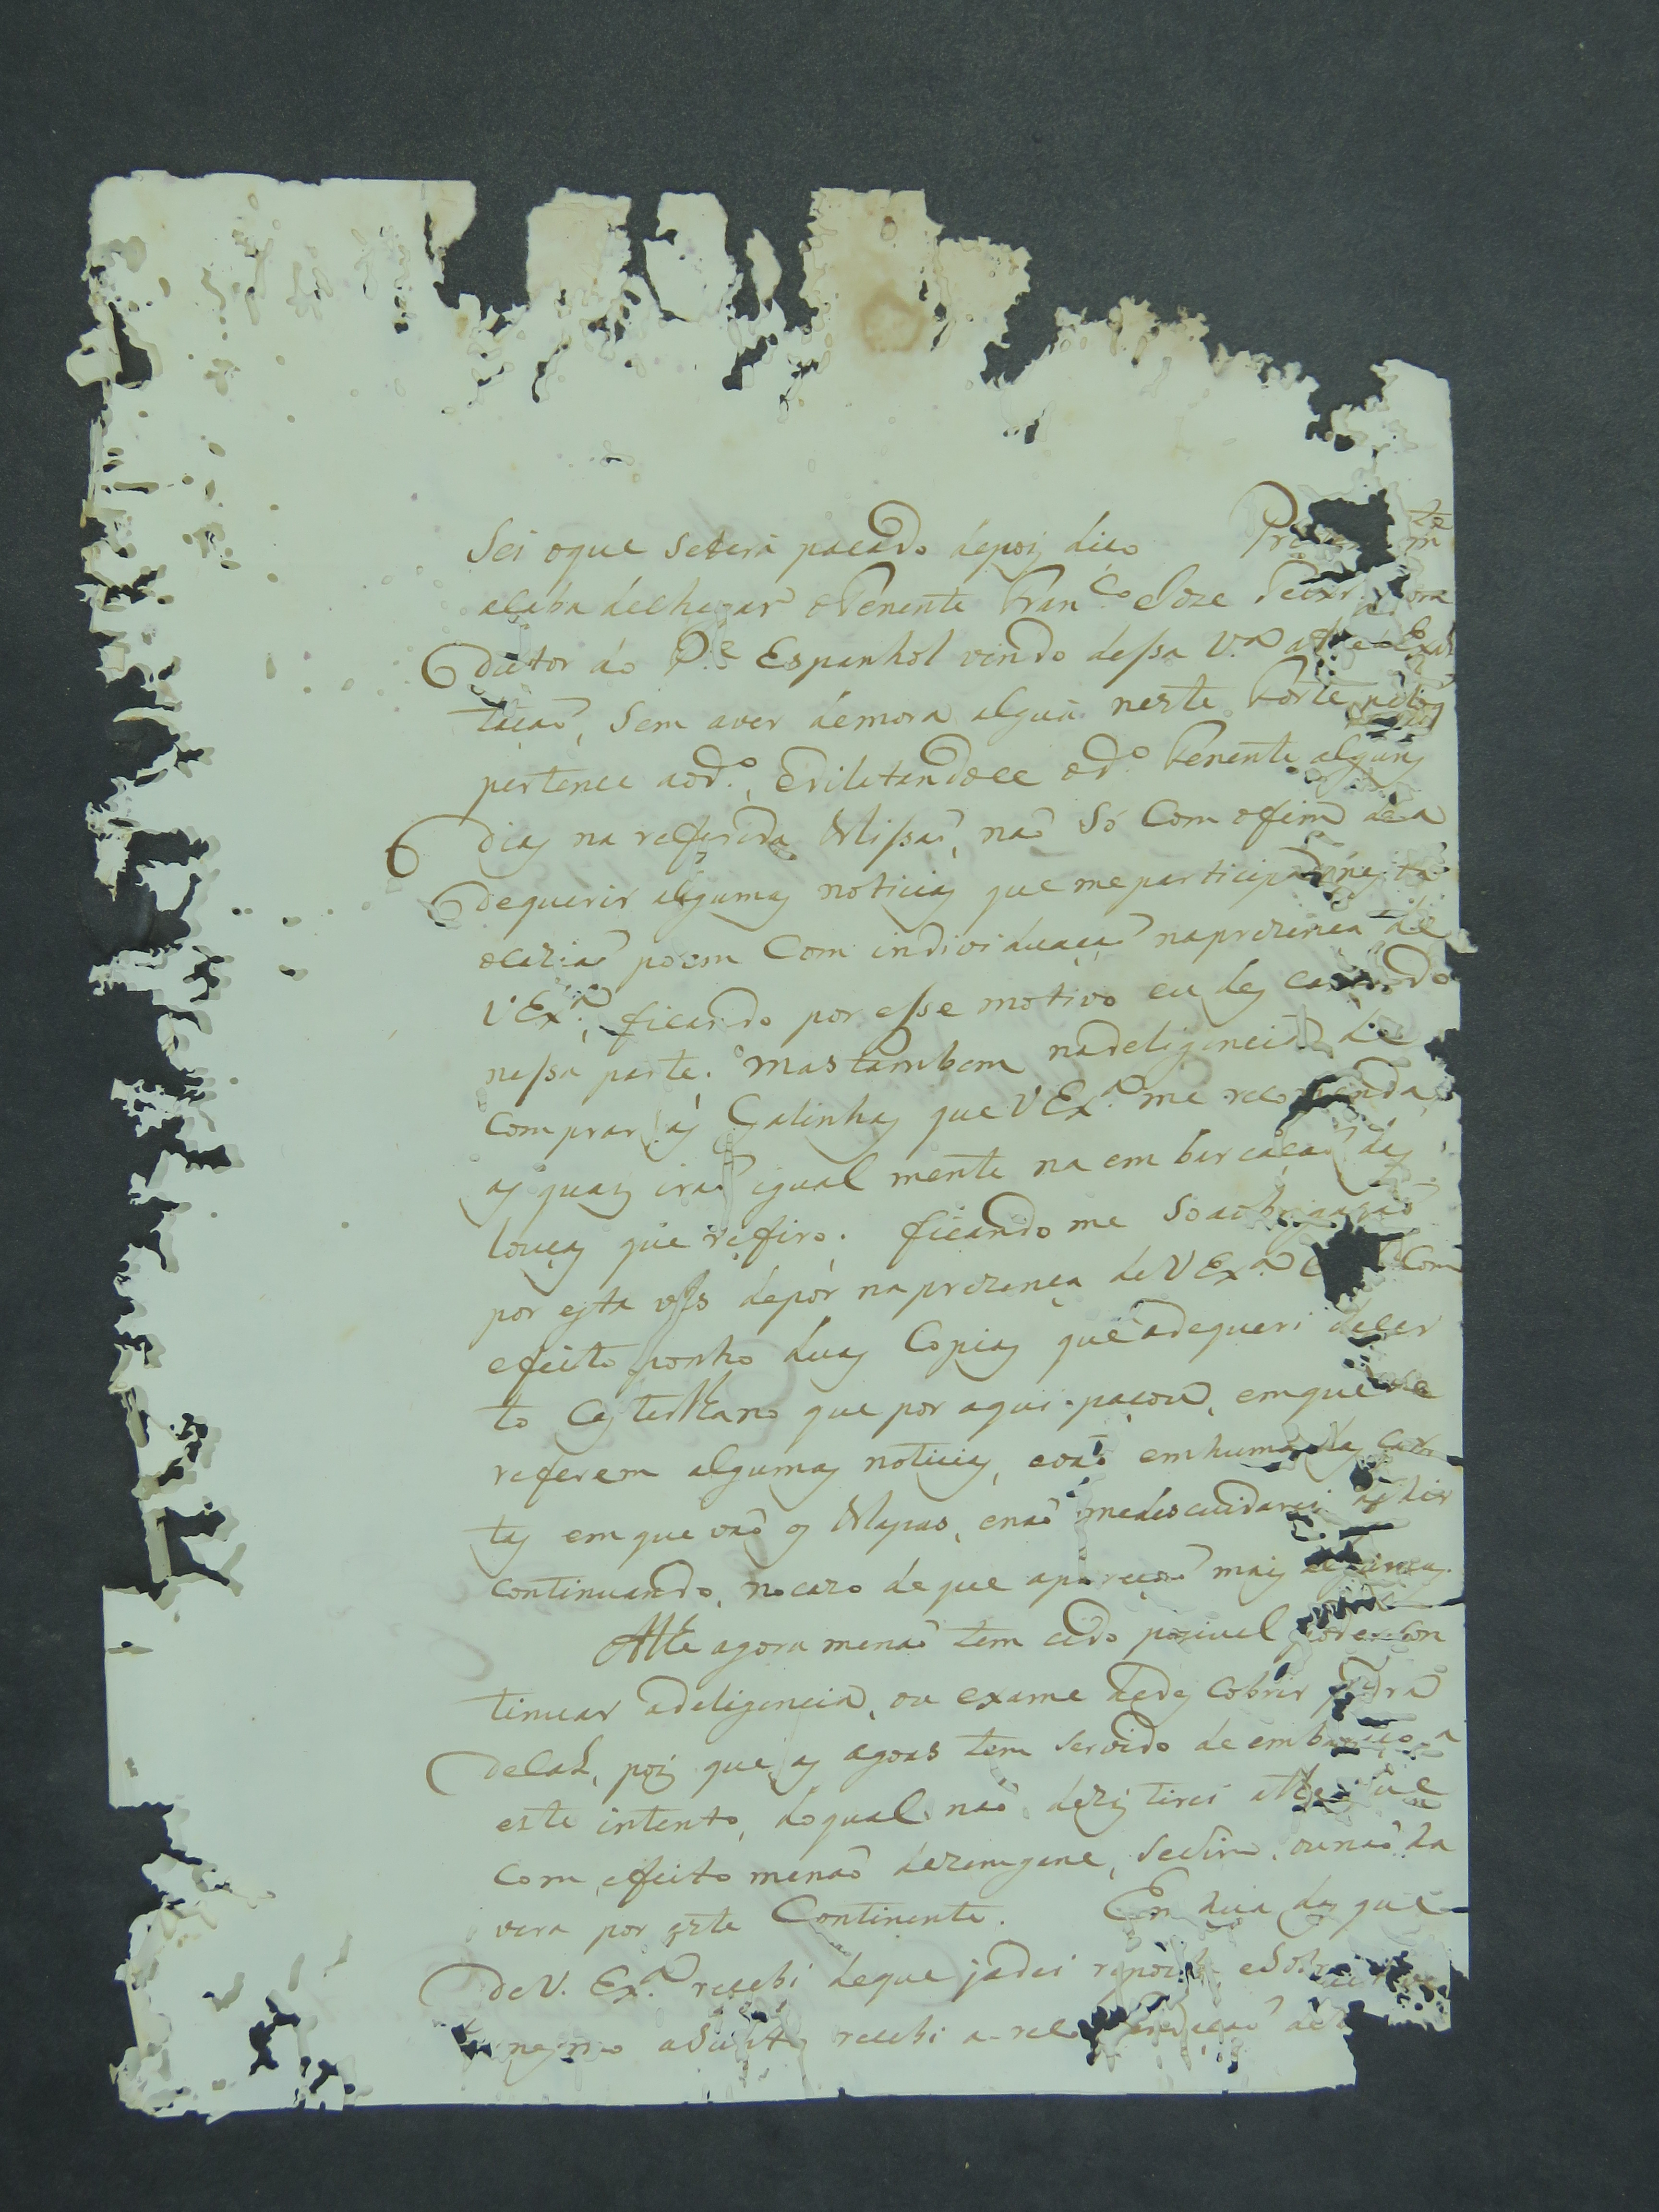 Sei oque seterá pacado depois dico
acaba dechegar o Tenente Fran.co Joze
dutor do P.e Espanhol vindo dessa V.a
tacaõ, sem aver demora algũa neste Forte,
pertence aod.o, e dilatandoce od.o Tenente alguns
dias na referida Missaõ, naõ só com ofim de a
dequerir algumas noticias que me participa, nesta
ocaziaõ poem com individuaçaõ naprezença de
V Ex.a, ficando por esse motivo eu des
nessa parte. mas tambem nadeligencia de
comprar as Galinhas que V Ex.a me recomenda,
as quais iraõ igual mente na em barcaçaõ das
louças que refiro. ficando me só aobrigaçaõ
por esta ves depór na prezença de V Ex.a Com
efeito ponho duas Copias que adequeri decer
to Castelhano que por aqui paçou, emque se
referem algumas noticias, evaõ em huma das car
tas em que vaõ os Mapas, enaõ medescuidarei de hir
continuando, nocazo de que apareçaõ mais
Athe agora menaõ tem cido pocivel poder con
tinuar adeligencia, ou exame dedes cobrir pedra
decal, pois que as agoas tem servido de embaraço a
este intento, doqual naõ dezis tirei athe que
com efeito menaõ dezemgane, Sesim, ounaõ ha
vera por este Continente. Em hũa das que
de V. Ex.a recebi deque jadei reposta, eSobre
mesmo asunto recebi a